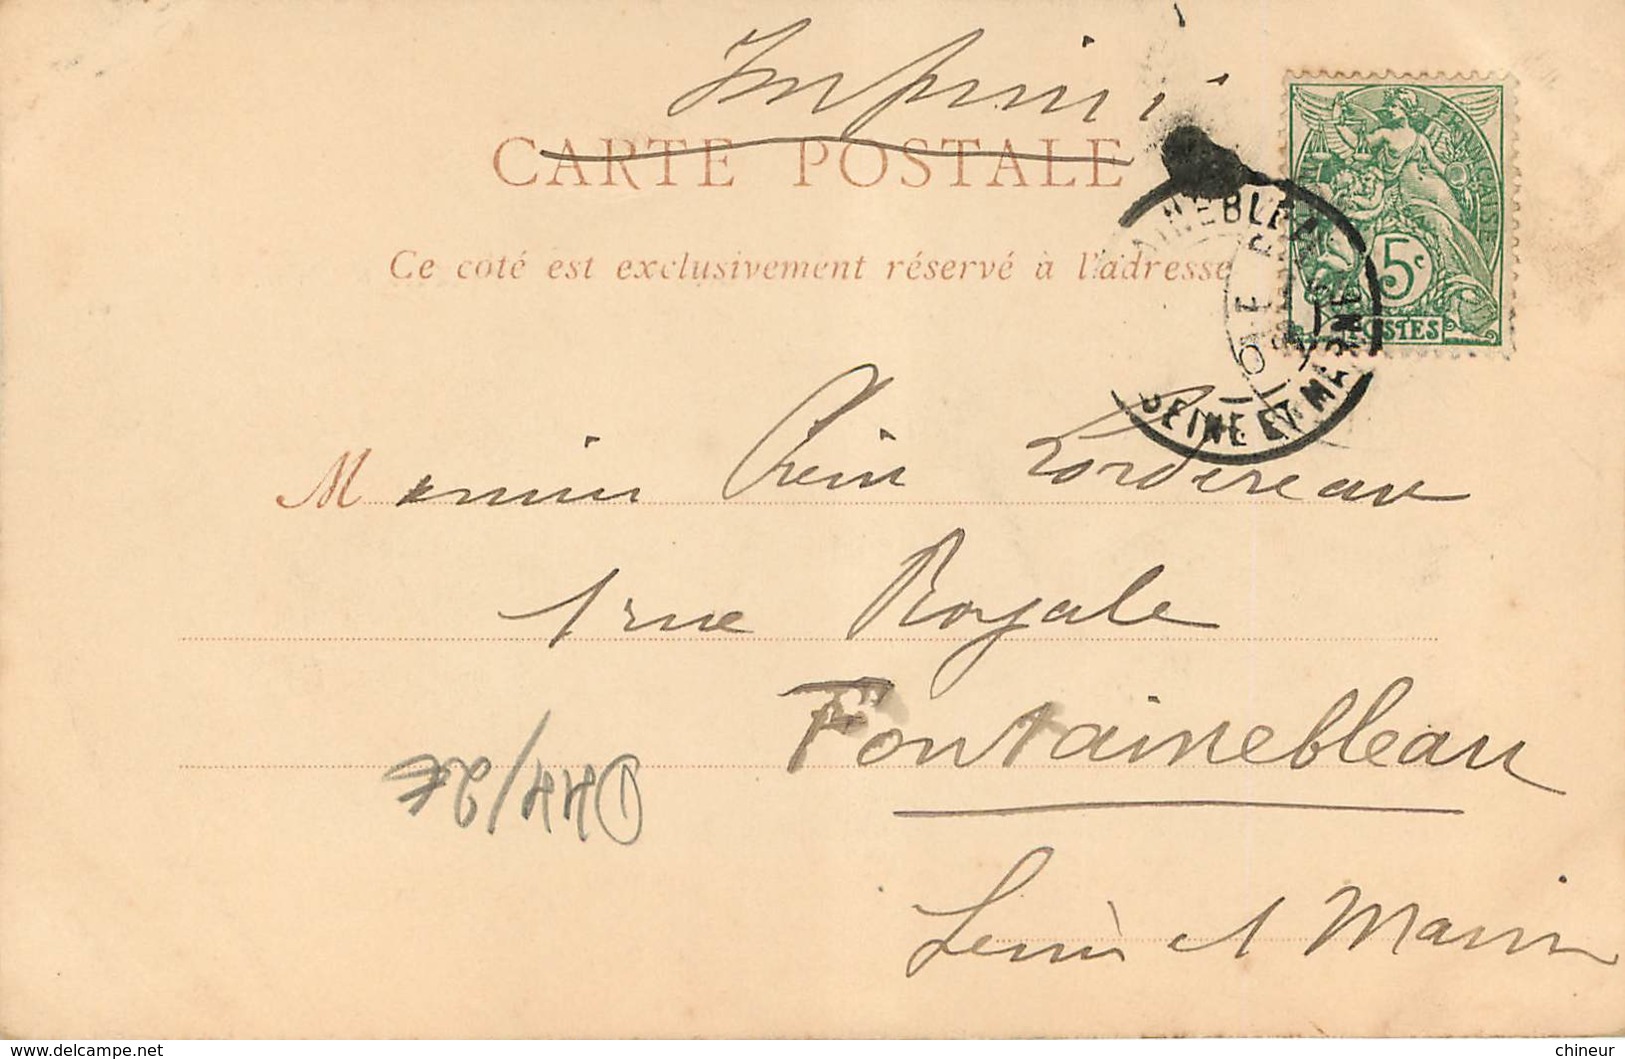 Imprimé
CARTE POSTALE
Ce coté est exclusivement réservé à l'adresse
RÉPUBLIQUE FRANÇAISE
5c
POSTES
FONTAINEBLEAU
SEINE ET MARNE
Monsieur Lordereau
1 rue Royale
Fontainebleau
Seine et Marne
chineur